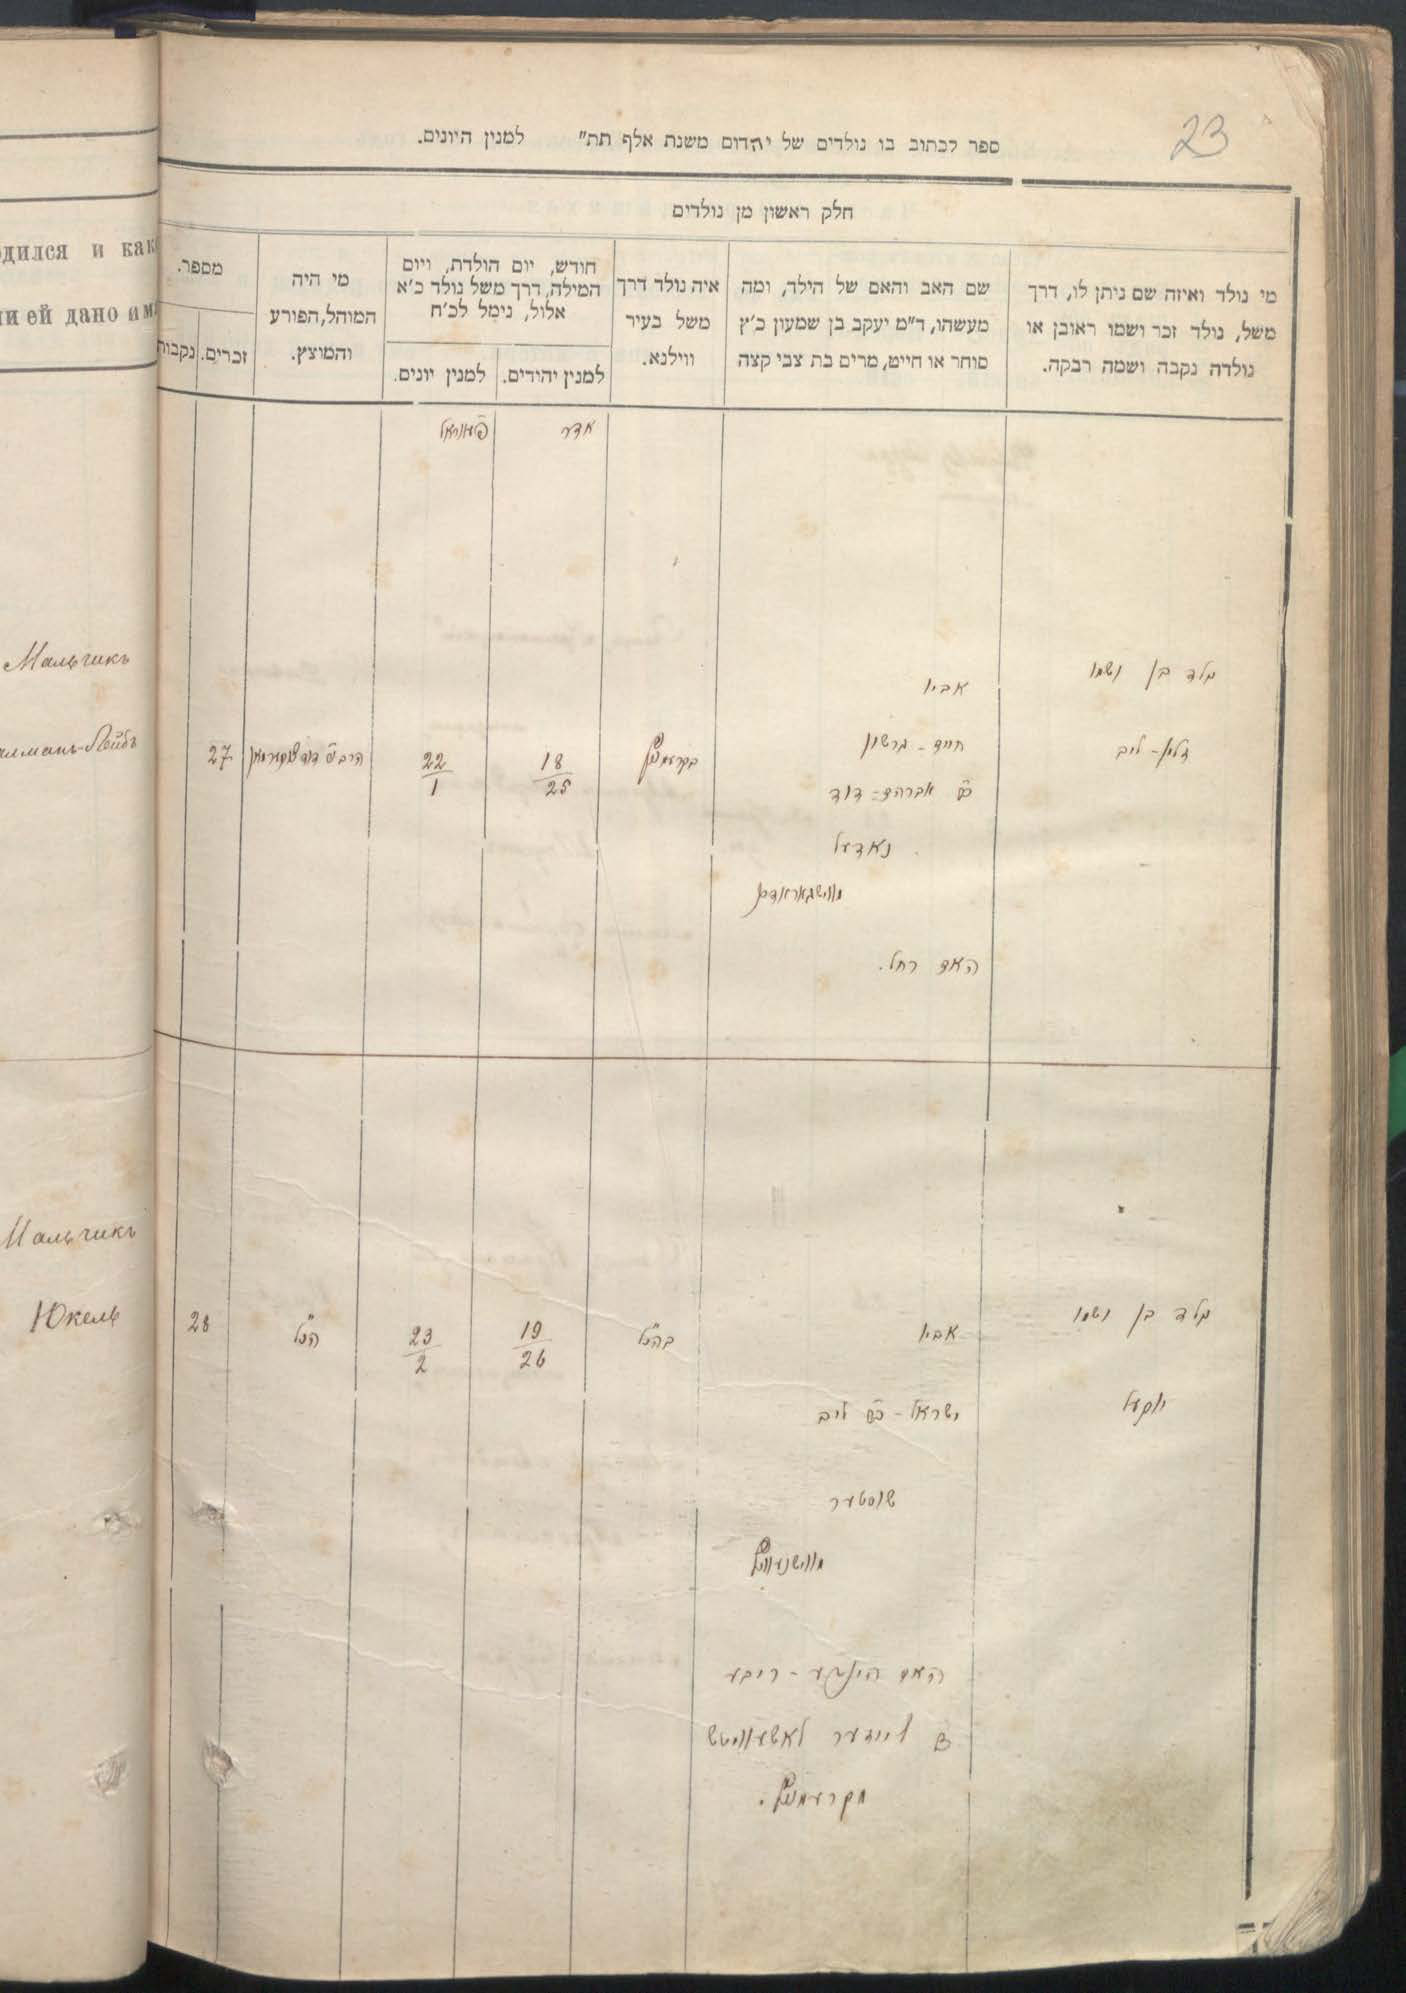 23
ספר לכתוב בו נולדים של יהדום משנת אלף תת״ למנין היונים.
חלק ראשון מן נולדים
מי נולד ואיזה שם ניתן לו, דרך
משל, נולד זכר ושמו ראובן או
נולדה נקבה ושמה רבקה.
שם האב והאם של הילד, ומה
מעשהו, ד״מ יעקב בן שמעון כ׳ץ
סוחר או חייט, מרים בת צבי קצה
איה נולד דרך
משל בעיר
ווילנא.
חודש, יום הולדת, ויום
המילה, דרך משל נולד כ׳א
אלול, נימל לכ׳ח
למנין יהודים.
למנין יונים.
מי היה
המוהל, הפורע
והמוצץ.
מספר.
זכרים.
נקבות
אדר
נולד בן ושמו
זלמן - ליב
אביו
חיים - גרשון
אברהם - דוד
נאדעל
האם רחל.
18
25
22
1
27
נולד בן ושמו
יוקעל
אביו
ישראל - ליב
שוסטער
האם הינדע - ריבע
לייזער
בהנ״ל
19
26
23
2
הנ״ל
28
одился и как
ли ей дано им
Мальчикъ
алманъ-Лейбъ
Мальчикъ
Юкель